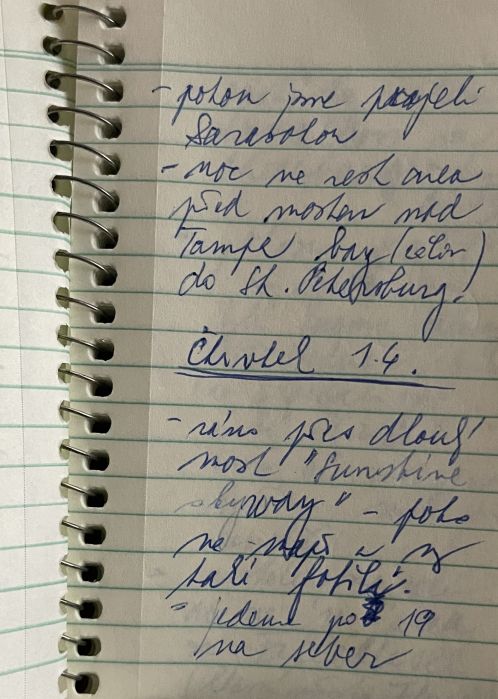 - potom jsme projeli
Sarasotou
- noc na rest area
před mostem nad
Tampa bay (celou)
do St. Petersburg!
Čtvrtek 1.4.
- ráno přes dlouhý
most "Sunshine
skyway" -
na mapě a z
baší fotila.
- jedeme po 19
na sever